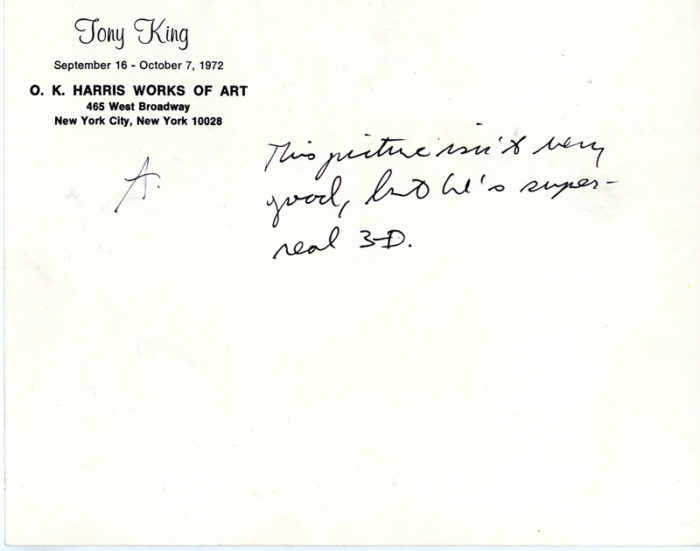 Tony King
September 16 - October 7, 1972
O. K. HARRIS WORKS OF ART
465 West Broadway
New York City, New York 10028
A.
This picture isn't very
good, but he's super-
real 3-D.